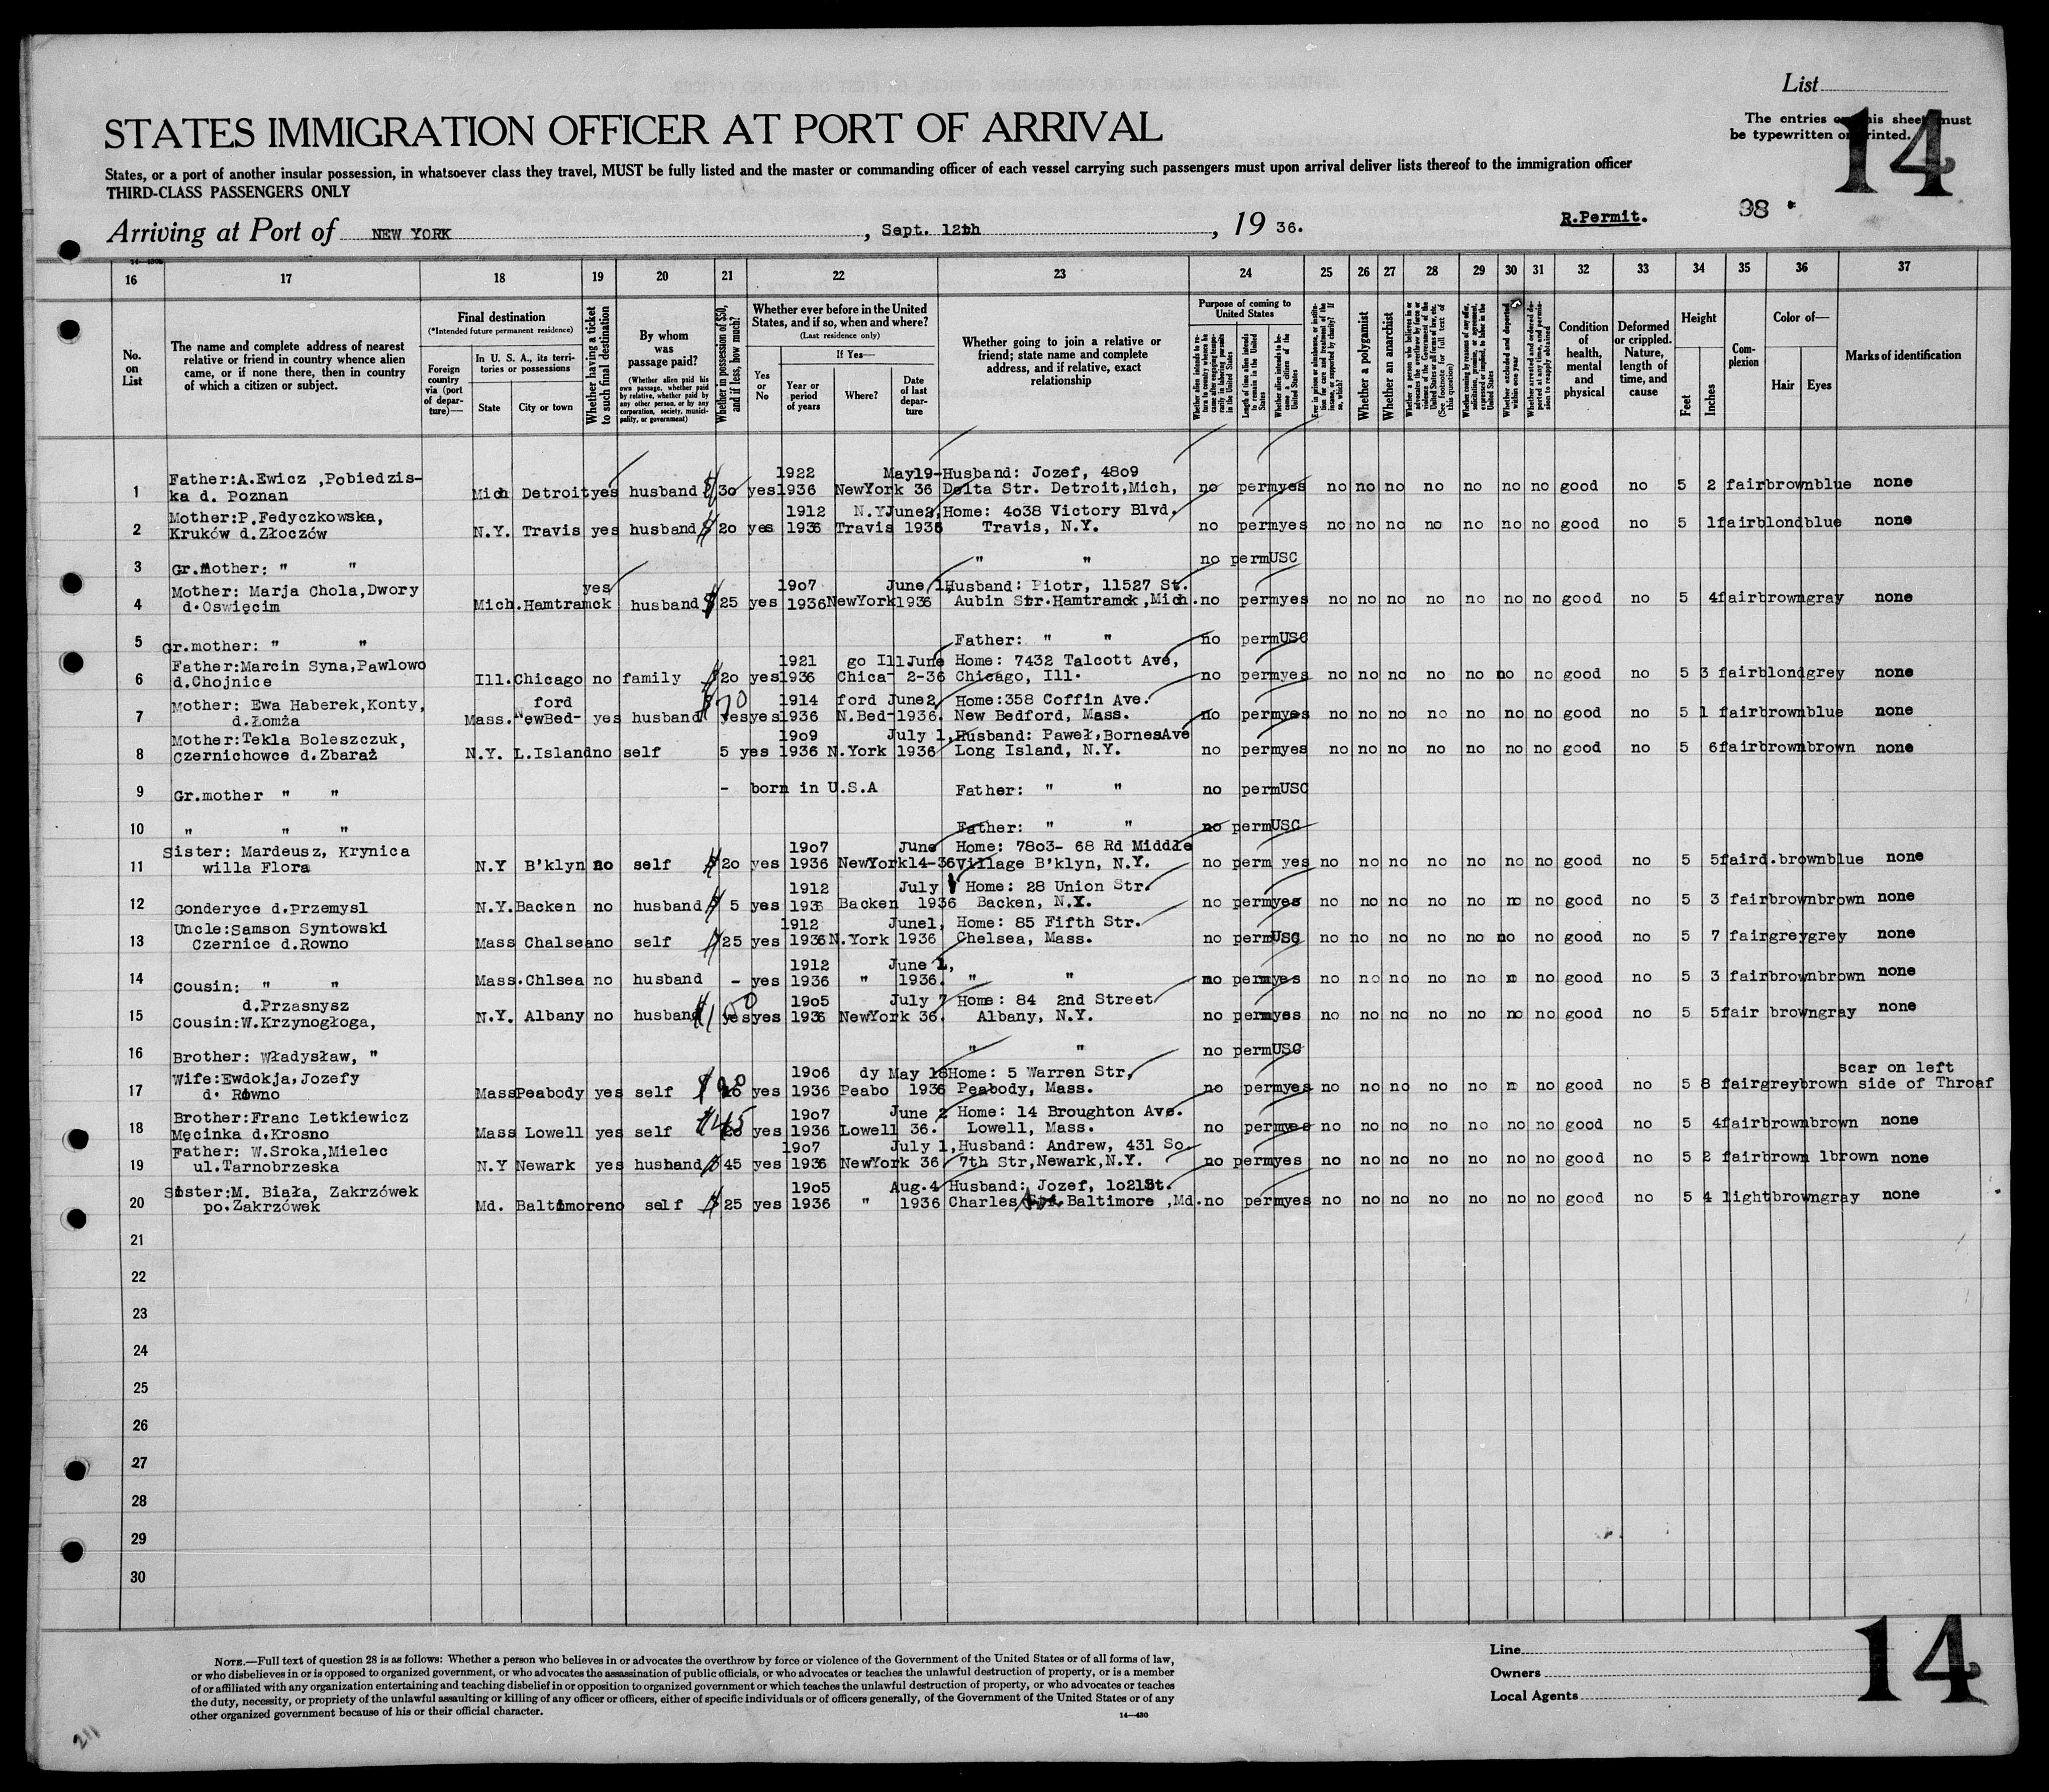 List
The entries on this sheet must
be typewritten or printed.
14
STATES IMMIGRATION OFFICER AT PORT OF ARRIVAL
States, or a port of another insular possession, in whatsoever class they travel, MUST be fully listed and the master or commanding officer of each vessel carrying such passengers must upon arrival deliver lists thereof to the immigration officer
THIRD-CLASS PASSENGERS ONLY
Arriving at Port of NEW YORK, Sept. 12th, 19 36.
R.Permit.
98
16 17 18 19 20 21 22 23 24 25 26 27 28 29 30 31 32 33 34 35 36 37
No. on List
The name and complete address of nearest relative or friend in country whence alien came, or if none there, then in country of which a citizen or subject.
Final destination
(*Intended future permanent residence)
Foreign country via (port of departure)—
In U. S. A., its territories or possessions
State
City or town
Whether having a ticket to such final destination
By whom was passage paid?
(Whether alien paid his own passage, whether paid by relative, whether paid by any other person, or by any corporation, society, municipality, or government)
Whether in possession of $50, and if less, how much?
Whether ever before in the United States, and if so, when and where?
(Last residence only)
Yes or No
If Yes—
Year or period of years
Where?
Date of last departure
Whether going to join a relative or friend; state name and complete address, and if relative, exact relationship
Purpose of coming to United States
Length of time alien intends to remain in the United States
Whether alien intends to become a citizen of the United States
Whether a polygamist
Whether an anarchist
Condition of health, mental and physical
Deformed or crippled. Nature, length of time, and cause
Height
Feet
Inches
Complexion
Color of—
Hair
Eyes
Marks of identification
Father:A.Ewicz ,Pobiedzis- 1922 May19- Husband: Jozef, 4809
1 ka d. Poznan Mich Detroit yes husband $ 30 yes 1936 NewYork 36 Delta Str. Detroit,Mich, no perm yes no no no no no no no good no 5 2 fair brown blue none
Mother:P.Fedyczkowska, 1912 N.Y June2, Home: 4038 Victory Blvd.
2 Kruków d.Złoczów N.Y. Travis yes husband $ 20 yes 1936 Travis 1936 Travis, N.Y. no perm yes no no no no no no no good no 5 1 fair blond blue none
3 Gr.Mother: " " " " no perm USC
Mother: Marja Chola,Dwory yes 1907 June 1, Husband: Piotr, 11527 St.
4 d.Oswięcim Mich. Hamtramck husband $ 25 yes 1936 NewYork 1936 Aubin Str.Hamtramck ,Mich. no perm yes no no no no no no no good no 5 4 fair brown gray none
5 Gr.mother: " " Father: " " no perm USC
Father:Marcin Syna,Pawlowo 1921 go Ill June Home: 7432 Talcott Ave,
6 d.Chojnice Ill. Chicago no family $ 20 yes 1936 Chica- 2-36 Chicago, Ill. no perm yes no no no no no no no good no 5 3 fair blond grey none
Mother: Ewa Haberek,Konty, ford $70 1914 ford June2, Home:358 Coffin Ave.
7 d.Łomża Mass. NewBed- yes husband yes yes 1936 N.Bed- 1936. New Bedford, Mass. no perm yes no no no no no no no good no 5 1 fair brown blue none
Mother:Tekla Boleszczuk, 1909 July 1, Husband: Paweł,BornesAve
8 Czernichowce d.Zbaraż N.Y. L.Island no self 5 yes 1936 N.York 1936 Long Island, N.Y. no perm yes no no no no no no no good no 5 6 fair brown brown none
9 Gr.mother " " - born in U.S.A Father: " " no perm USC
10 " " " Father: " " no perm USC
Sister: Mardeusz, Krynica 1907 June Home: 7803- 68 Rd Middle
11 willa Flora N.Y B'klyn no self $ 20 yes 1936 NewYork 14-36 Village B'klyn, N.Y. no perm yes no no no no no no no good no 5 5 fair d.brown blue none
1912 July Home: 28 Union Str.
12 Gonderyce d.Przemysl N.Y. Backen no husband $ 5 yes 1936 Backen 1936 Backen, N.Y. no perm yes no no no no no no no good no 5 3 fair brown brown none
Uncle:Samson Syntowski 1912 June1, Home: 85 Fifth Str.
13 Czernice d.Rowno Mass Chalsea no self $ 25 yes 1936 N.York 1936 Chelsea, Mass. no perm USC no no no no no no no good no 5 7 fair grey grey none
1912 June 1,
14 Cousin: " " Mass. Chlsea no husband - yes 1936 " 1936. " " no perm yes no no no no no no no good no 5 3 fair brown brown none
d.Przasnysz 1905 July 7 Home: 84 2nd Street
15 Cousin:W.Krzynogłoga, N.Y. Albany no husband yes yes 1936 NewYork 36. Albany, N.Y. no perm yes no no no no no no no good no 5 5 fair brown gray none
16 Brother: Władysław, " " " no perm USC
Wife:Ewdokja,Jozefy 1906 dy May 18 Home: 5 Warren Str, scar on left
17 d. Rowno Mass Peabody yes self $ yes 1936 Peabo 1936 Peabody, Mass. no perm yes no no no no no no no good no 5 8 fair grey brown side of Throat
Brother:Franc Letkiewicz $45 1907 June 2 Home: 14 Broughton Ave.
18 Męcinka d.Krosno Mass Lowell yes self 20 yes 1936 Lowell 36. Lowell, Mass. no perm yes no no no no no no no good no 5 4 fair brown brown none
Father: W.Sroka,Mielec 1907 July 1, Husband: Andrew, 431 So.
19 ul.Tarnobrzeska N.Y Newark yes husband $ 45 yes 1936 NewYork 36 7th Str,Newark,N.Y. no perm yes no no no no no no no good no 5 2 fair brown lbrown none
Sister:M. Biała, Zakrzówek 1905 Aug.4 Husband: Jozef, 1021 St.
20 po.Zakrzówek Md. Baltimore no self $ 25 yes 1936 " 1936 Charles Baltimore ,Md. no perm yes no no no no no no no good no 5 4 light brown gray none
21
22
23
24
25
26
27
28
29
30
NOTE.—Full text of question 28 is as follows: Whether a person who believes in or advocates the overthrow by force or violence of the Government of the United States or of all forms of law,
or who disbelieves in or is opposed to organized government, or who advocates the assassination of public officials, or who advocates or teaches the unlawful destruction of property, or is a member
of or affiliated with any organization entertaining and teaching disbelief in or opposition to organized government or which teaches the unlawful destruction of property, or who advocates or teaches
the duty, necessity, or propriety of the unlawful assaulting or killing of any officer or officers, either of specific individuals or of officers generally, of the Government of the United States or of any
other organized government because of his or their official character.
14—430
Line
Owners
Local Agents
14
211